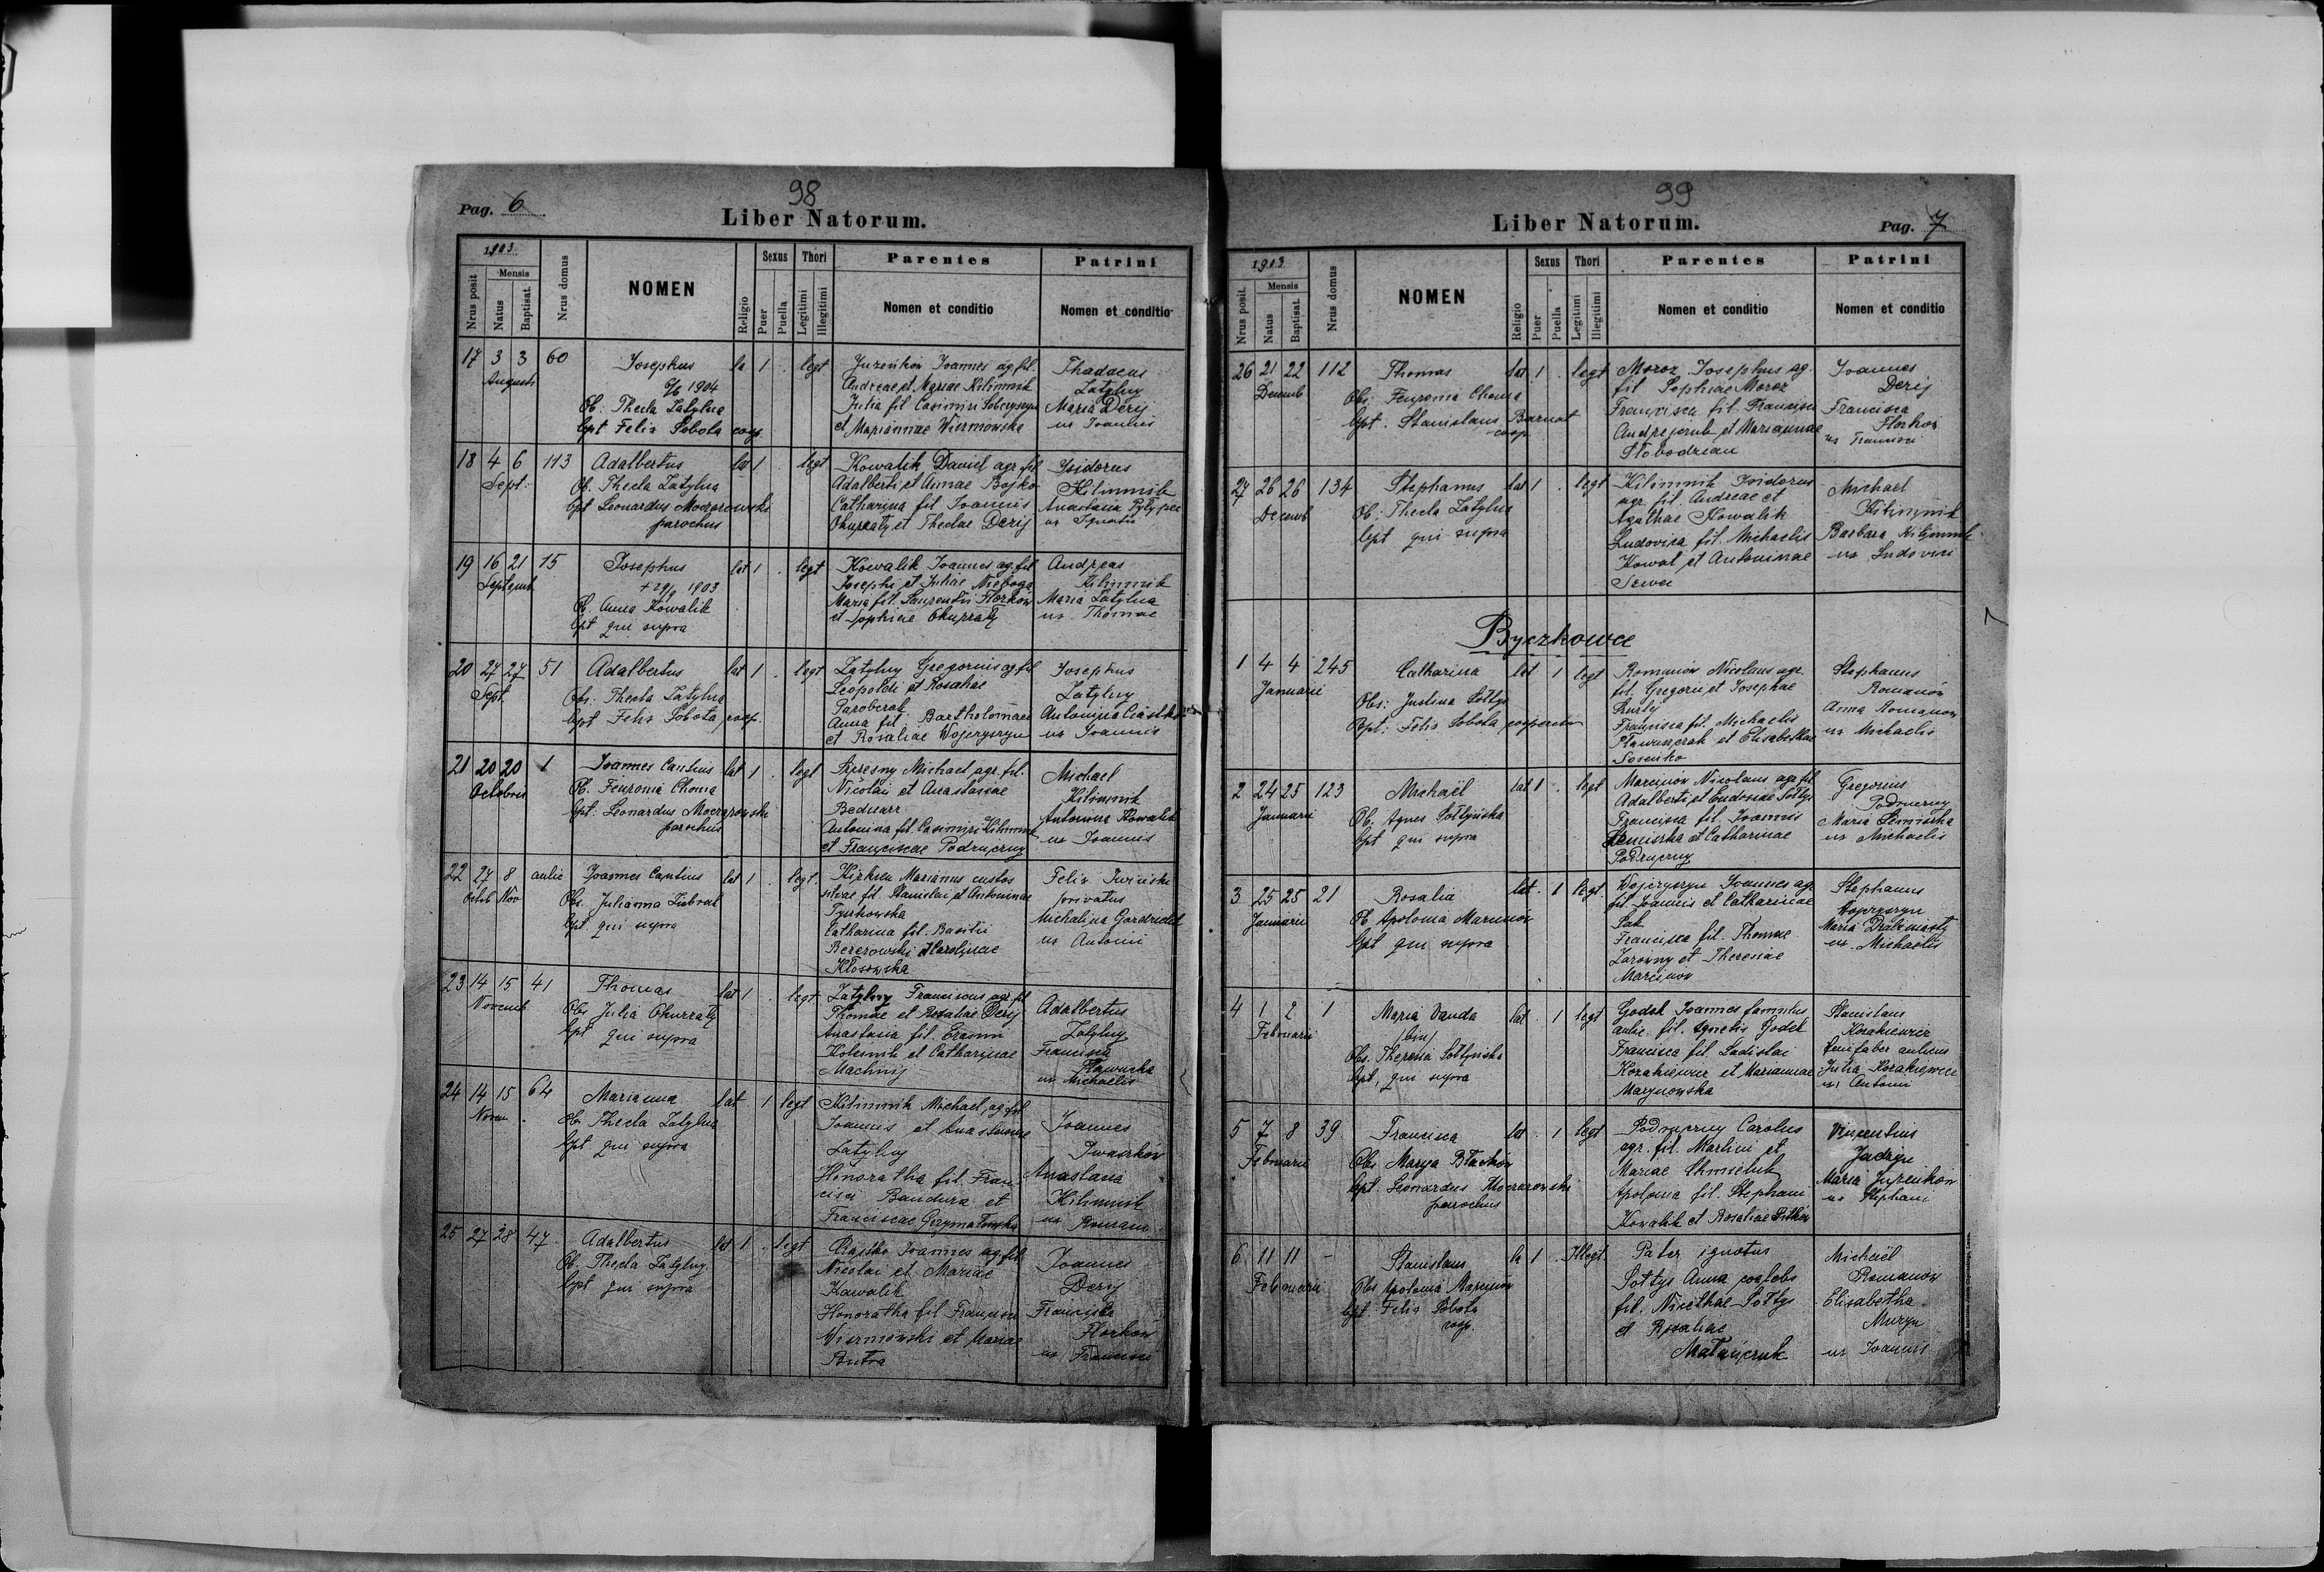 98
Pag. 6
Liber Natorum.
1903
Nrus posit
Mensis
Natus
Baptisat.
Nrus domus
NOMEN
Religio
Sexus
Puer
Puella
Thori
Legitimi
Illegitimi
Parentes
Nomen et conditio
Patrini
Nomen et conditio
17 3 3 60
Augusti
Josephus
1904
Ob: Thecla Zatylna
bpt Felix Sobota coop.
la 1 . legt
Juzenkow Joannes ag. fil.
Andreae et Mariae Kilimnik
Julia fil Casimiri
et Mariannae Wiernowska
Thadaeus
Zatylny
Maria Derij
ux Joannis
18 4 6 113
Sept.
Adalbertus
Ob. Thecla Zatylna
bpt Leonardus Moczarowski
parochus
lat 1 legt
Kowalik Daniel agr. fil
Adalberti et Annae Bojko
Catharina fil Joannis
Okurzaty et Theclae Derij
Isidorus
Kilimnik
Anastasia
ux Ignatii
19 16 21 15
Septemb
Josephus
+ 29/9 1903
Ob. Anna Kowalik
bpt qui supra
lat 1 . legt
Kowalik Joannes ag. fil
Josephi et Juliae Nieboga
Maria fil. Laurentii Florkow
et Sophiae Okurzaty
Andreas
Kilimnik
Maria Zatylna
ux Thomae
20 27 27 51
Sept.
Adalbertus
Obs. Thecla Zatylna
bpt Felix Sobota coop.
lat 1 . legt
Zatylny Gregorius ag. fil
Leopoldi et Rosaliae
Paroberak
Anna fil. Bartholomaei
et Rosaliae Wojczyszyn
Josephus
Zatylny
Antonina
ux Joannis
21 20 20 1
Octobris
Joannes Cantius
Ob. Feuronia Choma
bpt. Leonardus Moczarowski
parochus
lat 1 . legt
Michael agr. fil.
Nicolai et Anastasiae
Bednarz
Antonina fil. Casimiri Kilimnik
et Franciscae Podruczny
Michael
Kilimnik
Antonina Kowalik
ux Joannis
22 27 8 aulic
Octob Nov
Joannes Cantius
Obs. Julianna
bpt. qui supra
lat 1 . legt.
Marianus custos
silvae fil. Stanislai et Antoninae
Catharina fil. Basilii
Berezowski et Karolinae
Kłosowska
Felix
privatus
Michalina
ux Antonii
23 14 15 41
Novemb
Thomas
Obs Julia Okurzaty
bpt qui supra
lat 1 . legt
Zatylny Franciscus agr. fil
Thomae et Rosaliae Derij
Anastasia fil. Erasmi
Kolesnik et Catharinae
Machnij
Adalbertus
Zatylny
Francisca
ux Michaelis
24 14 15 64
Novem.
Marianna
Ob Thecla Zatylna
bpt qui supra
lat . 1 legt
Kilimnik Michael, ag. fil
Joannis et Anastasiae
Zatylny
Honoratha fil. Fran-
cisci Bandura et
Franciscae
Joannes
Iwaszkow
Anastasia
Kilimnik
ux Romani
25 27 28 47
Adalbertus
Ob. Thecla Zatylny
bpt qui supra
lat 1 . legt
Joannes ag. fil
Nicolai et Mariae
Kowalik
Honoratha fil Francisci
Wiernowski et Mariae
Joannes
Derij
Francisca
Florkow
ux Francisci
99
Liber Natorum.
Pag. 7
1903
Nrus posit.
Mensis
Natus
Baptisat.
Nrus domus
NOMEN
Religio
Sexus
Puer
Puella
Thori
Legitimi
Illegitimi
Parentes
Nomen et conditio
Patrini
Nomen et conditio
26 21 22 112
Decemb
Thomas
Obs: Feuronia Choma
bpt. Stanislaus Barnat
coop.
lat 1 . legt
Moroz Josephus ag.
fil Sophiae Moroz
Francisca fil. Francisci
Andrejczuk et Mariannae
Słobodzian
Joannes
Derij
Francisca
Florkow
ux Francisci
27 26 26 134
Decemb
Stephanus
Ob: Thecla Zatylna
bpt qui supra
lat 1 . legt
Kilimnik Isidorus
agr. fil. Andreae et
Agathae Kowalik
Ludovica fil. Michaelis
Kowal et Antoninae
Michael
Kilimnik
Barbara Kilimnik
ux Ludovici
Byczkowce
1 4 4 245
Januarii
Catharina
Obs: Justina Sołtys
bpt: Felix Sobota cooperator
lat 1 legt
Romanów Nicolaus agr.
fil. Gregorii et Josephae
Francisca fil. Michaelis
et Elisabethae
Stephanus
Romanów
Anna Romanow
ux Michaelis
2 24 25 123
Januarii
Michaël
Ob. Agnes Sołtyńska
bpt qui supra
lat 1 . legt
Marcinów Nicolaus agr. fil
Adalberti et Eudosiae Sołtys
Francisca fil. Joannis
et Catharinae
Podruczny
Gregorius
Podruczny
Maria
ux Michaelis
3 25 25 21
Januarii
Rosalia
Ob Apolonia Marcinów
bpt qui supra
lat . 1 legt.
Wojczyszyn Joannes ag.
fil. Joannis et Catharinae
Francisca fil. Thomae
et Theresiae
Marcinow
Stephanus
Wojczyszyn
Maria
ux. Michaelis
4 1 2 1
Februarii
Maria Vanda
bin/
Obs. Theresia Sołtyńska
bpt, qui supra
lat . 1 legt
Godek Joannes famulus
aulic. fil. Agnetis Godek
Francisca fil. Ladislai
Kozakiewicz et Mariannae
Marynowska
Stanislaus
Kozakiewicz
faber aulicus
Julia Kozakiewicz
ux Antonii
5 7 8 39
Februarii
Francisca
Obs Marya
bpt. Leonardus Moczarowski
parochus
lat . 1 legt
Podruczny Carolus
agr. fil. Martini et
Mariae
Apolonia fil. Stephani
Kowalik et Rosaliae
Vincentius
Maria Juzenkow
ux Stephani
6 11 11 -
Februarii
Stanislaus
Obs Apolonia Marcinów
bpt Felix Sobota
coop.
la 1 . Illegt
Pater ignotus
Sołtys Anna coelebs
fil. Nicethae Sołtys
et Rosaliae
Michaël
Romanów
Elisabetha
Muryn
ux Joannis